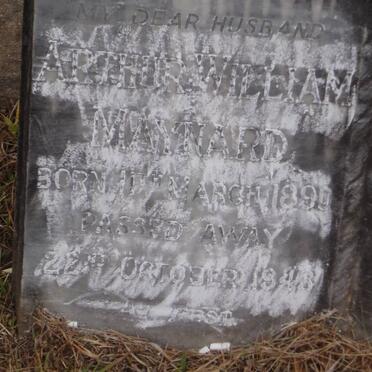 MY DEAR HUSBAND
ARTHUR WILLIAM
MAYNARD
BORN 11TH MARCH 1890
PASSED AWAY
22ND OCTOBER 1948
AT REST